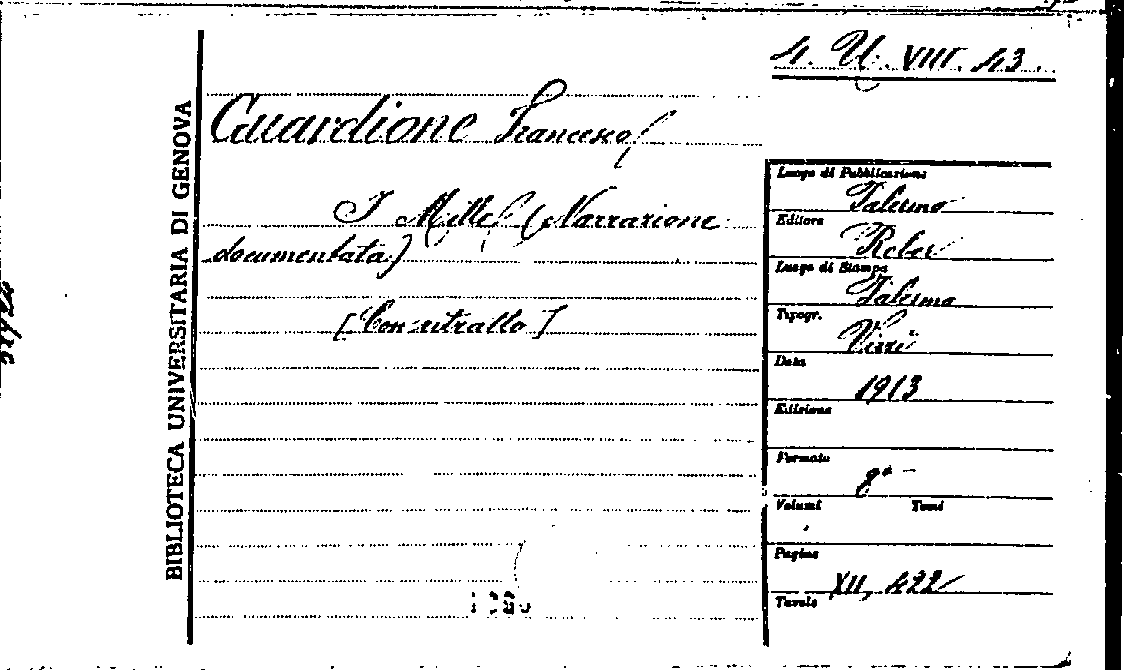 4. U. VIII. 43.
BIBLIOTECA UNIVERSITARIA DI GENOVA
Guardione Francesco
I Mille (Narrazione
documentata)
[Con ritratto]
Luogo di Pubblicazione
Palermo
Editore
Reber
Luogo di Stampa
Palermo
Tipogr.
Virzì
Data
1913
Edizione
Formato
8°
Volumi Tomi
Pagine
XII, 422
Tavole